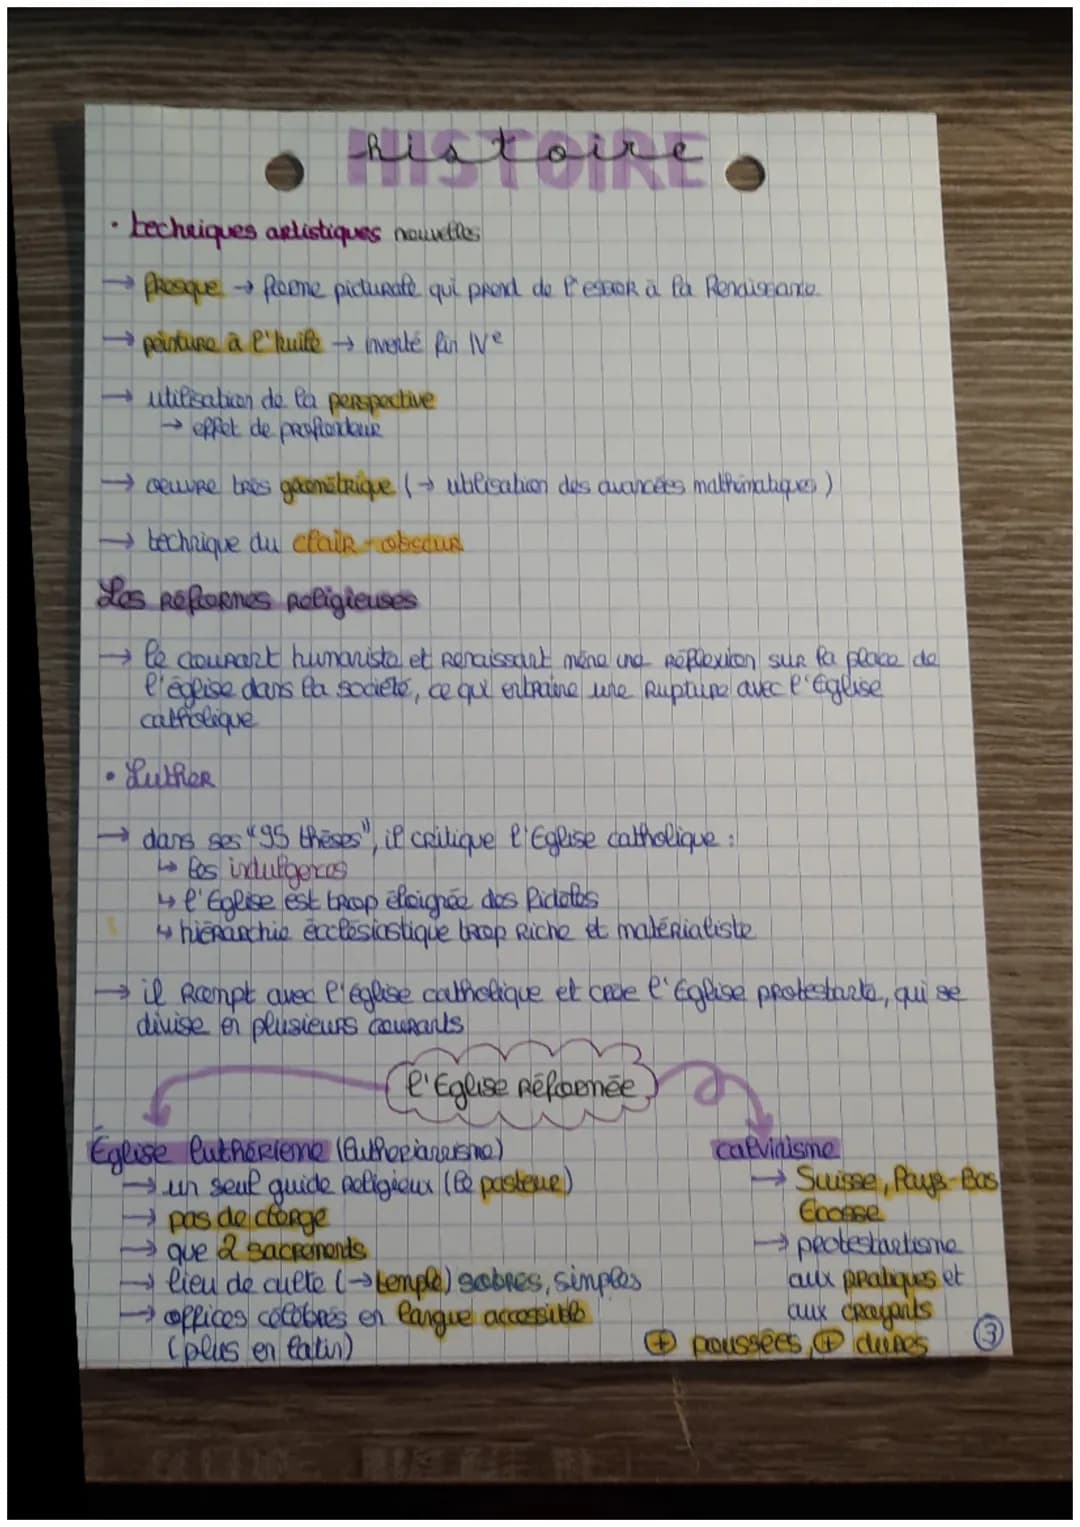 HISTOIRE
histoire
• techniques artistiques nouvelles
→ fresque → forme picturale qui prend de l'essor à la Renaissance
→ peinture à l'huile → inventé fin IVe
→ utilisation de la perspective
→ effet de profondeur
→ oeuvre très géométrique (→ utilisation des avancées mathématiques)
→ technique du clair-obscur
Les réformes religieuses
→ le courant humaniste et Renaissant mène une réflexion sur la place de
l'église dans la société, ce qui entraine une rupture avec l'Église
catholique
• Luther
→ dans ses "95 thèses", il critique l'Eglise catholique :
↳ les indulgences
↳ l'Eglise est trop éloignée des fidèles
↳ hiérarchie ecclésiastique trop riche et matérialiste
→ il rompt avec l'église catholique et crée l'Eglise protestante, qui se
divise en plusieurs courants
l'Eglise réformée
Église luthérienne (luthérianisme)
→ un seul guide religieux (le pasteur)
→ pas de clergé
→ que 2 sacrements
→ lieu de culte (→ temple) sobres, simples
→ offices célébrés en langue accessible
(plus en latin)
calvinisme
→ Suisse, Pays-Bas
Ecosse
→ protestantisme
aux pratiques et
aux croyants
+ poussées, + dures
3